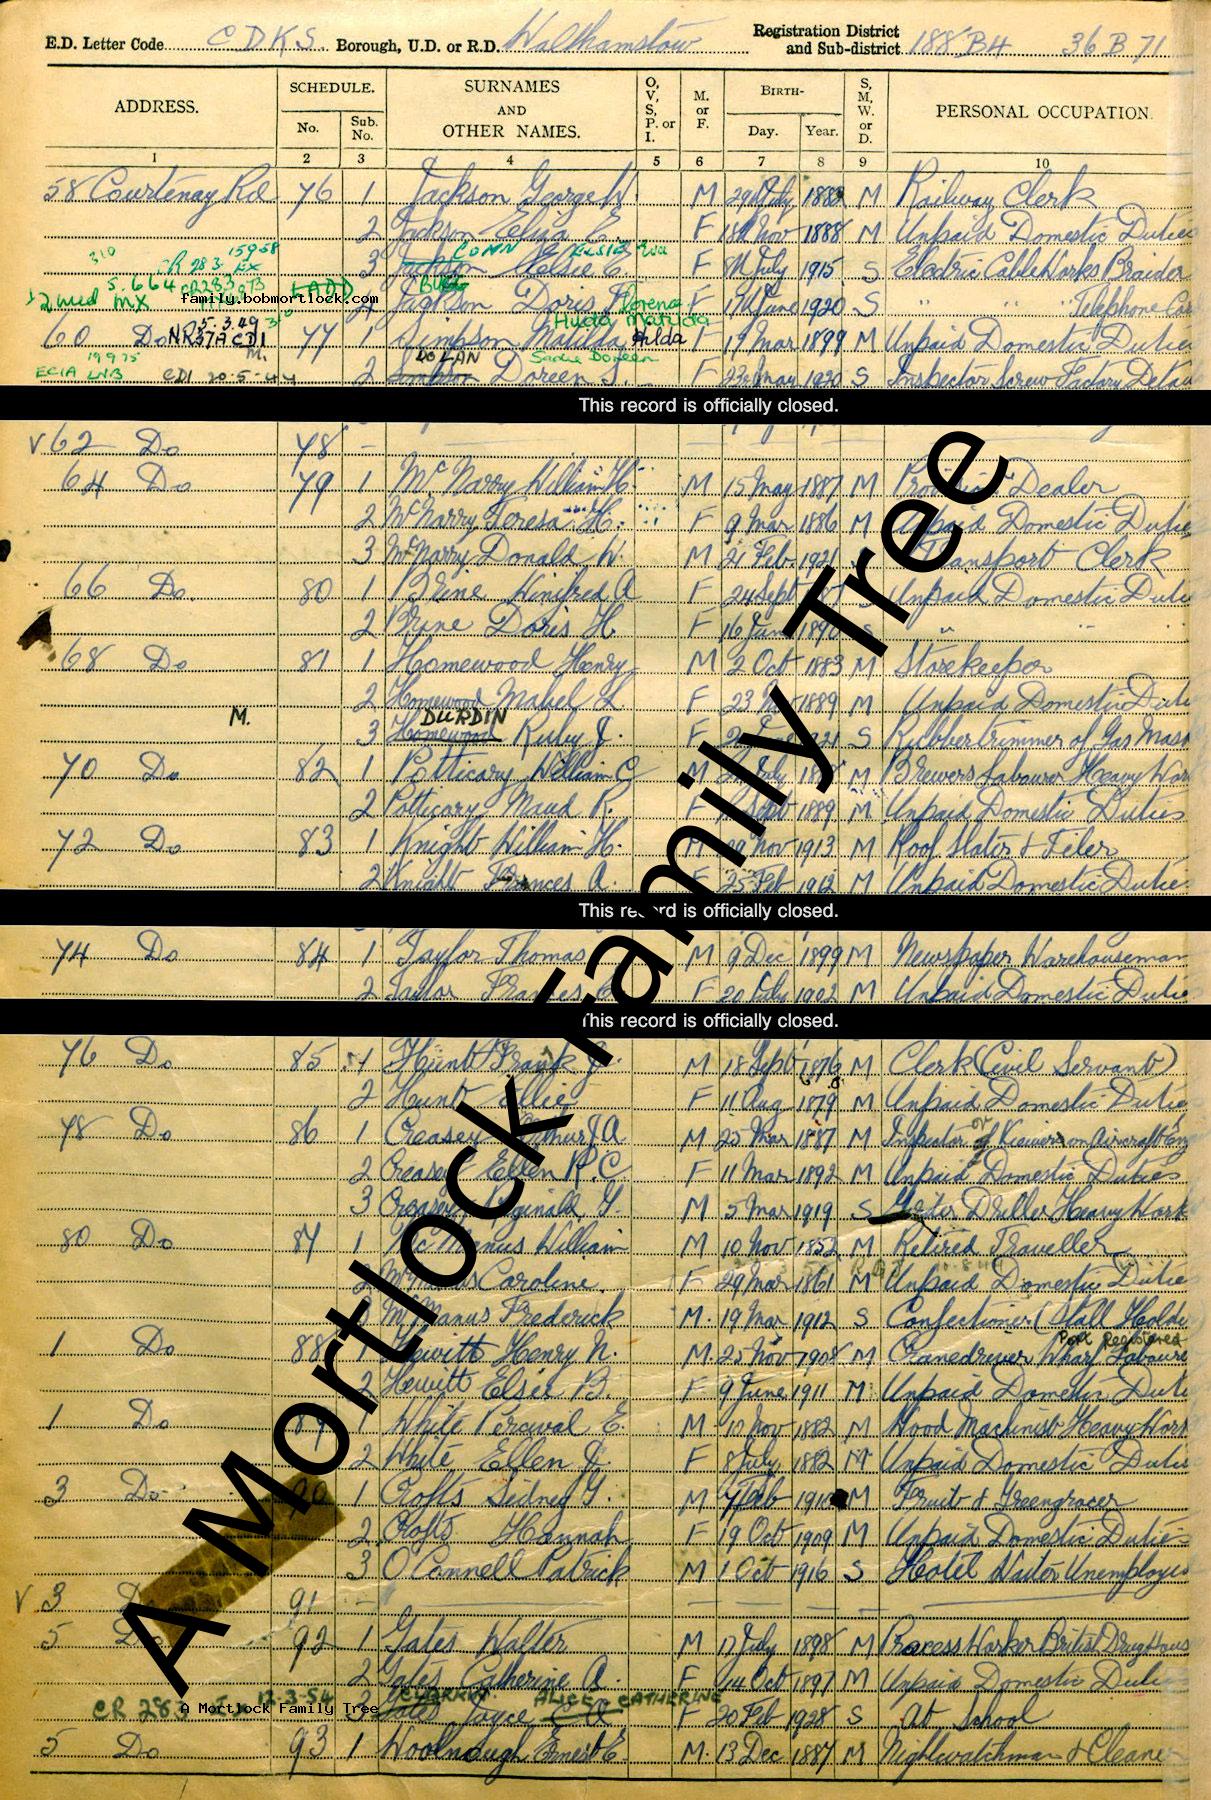 E.D. Letter Code CDKS Borough, U.D. or R.D. Walthamstow Registration District and Sub-district 188 B4 36 B 71
ADDRESS. SCHEDULE. No. Sub. No. SURNAMES AND OTHER NAMES. O, V, S, P. or I. M. or F. BIRTH- Day. Year. S, M, W. or D. PERSONAL OCCUPATION.
1 2 3 4 5 6 7 8 9 10
58 Courtenay Rd 76 1 Jackson George W. M 29 July 1888 M Railway Clerk
2 Jackson Eliza E. F 18 Nov 1888 M Unpaid Domestic Duties
310 CR 283 15958 EX CONN ELSIE Eva
3 Jackson Elsie E. F 8 July 1915 S Electric Cable Works Braider
5.6.64 CR283 LADD BUGG
2 Wed MX family.bobmortlock.com
4 Jackson Doris F Florence F 17 June 1920 S " " " Telephone
5.3.49 310 Hilda Matilda
60 Do NR37A CD1 77 1 Simpson Matilda Hilda F 19 Mar 1899 M Unpaid Domestic Duties
19975 M. DOLAN Sadie Doreen
ECIA LNB CD1 20-5-44 2 Simpson Doreen S. F 23 May 1920 S Inspector Screw Factory
This record is officially closed.
V 62 Do 78 -
64 Do 79 1 McNarry William H. M 15 May 1887 M Provision Dealer
2 McNarry Teresa H. F 9 Mar 1886 M Unpaid Domestic Duties
3 McNarry Donald W. M 21 Feb 1921 Transport Clerk
66 Do 80 1 Brine Winifred A F 24 Sept S Unpaid Domestic Duties
2 Brine Doris H. F 16 1890 S " "
68 Do 81 1 Homewood Henry M 2 Oct 1883 M Storekeeper
2 Homewood Mabel L F 23 1889 M Unpaid Domestic Duties
M. DURDIN
3 Homewood Ruby J. F 1921 S Rubber trimmer of Gas Mask
70 Do 82 1 Potticary William C M July M Brewers Labourer Heavy Work
2 Potticary Maud R. F Sept 1889 M Unpaid Domestic Duties
72 Do 83 1 Knight William H. M Nov 1913 M Roof Slater & Tiler
2 Knight Frances A. F 25 Feb 1912 M Unpaid Domestic Duties
This record is officially closed.
74 Do 84 1 Taylor Thomas M 9 Dec 1899 M Newspaper Warehouseman
2 Taylor Frances F 20 July 1902 M Unpaid Domestic Duties
This record is officially closed.
76 Do 85 1 Hunt Frank J. M 18 Sept 1876 M Clerk (Civil Servant)
2 Hunt Ellie F 11 Aug 1879 M Unpaid Domestic Duties
78 Do 86 1 Creasey Arthur J A M 25 Mar 1887 M Inspector of Viewers on Aircraft Eng
2 Creasey Ellen R. C. F 11 Mar 1892 M Unpaid Domestic Duties
3 Creasey Reginald G. M 5 Mar 1919 S Driller Heavy Work
80 Do 87 1 McManus William M 10 Nov 1852 M Retired Traveller
2 McManus Caroline F 29 Mar 1861 M Unpaid Domestic Duties
3 McManus Frederick M. 19 Mar 1912 S Confectioner (Stall Holder
Port Registered
1 Do 88 1 Hewitt Henry N. M. 25 Nov 1908 M Cranedriver Wharf Labourer
2 Hewitt Elsie B. F 9 June 1911 M Unpaid Domestic Duties
1 Do 89 1 White Percival E. M 10 Nov 1882 M Wood Machinist Heavy Work
2 White Ellen F 8 July 1882 M Unpaid Domestic Duties
3 Do 90 1 Crofts Sidney G. M 7 Feb 1910 M Fruit & Greengrocer
2 Crofts Hannah F 19 Oct 1909 M Unpaid Domestic Duties
3 O'Connell Patrick M 1 Oct 1916 S Hotel Waiter Unemployed
V 3 Do 91 -
5 Do 92 1 Gates Walter M 17 July 1898 M Process Worker British Drug Hous
2 Gates Catherine A. F 14 Oct 1897 M Unpaid Domestic Duties
CR 283 Ex 12-3-54 CLARKIN ALICE CATHERINE
A Mortlock Family Tree
3 Gates Joyce F 20 Feb 1928 S At School
5 Do 93 1 Woolnough Ernest E. M. 13 Dec 1887 M Nightwatchman & Cleaner
A Mortlock Family Tree